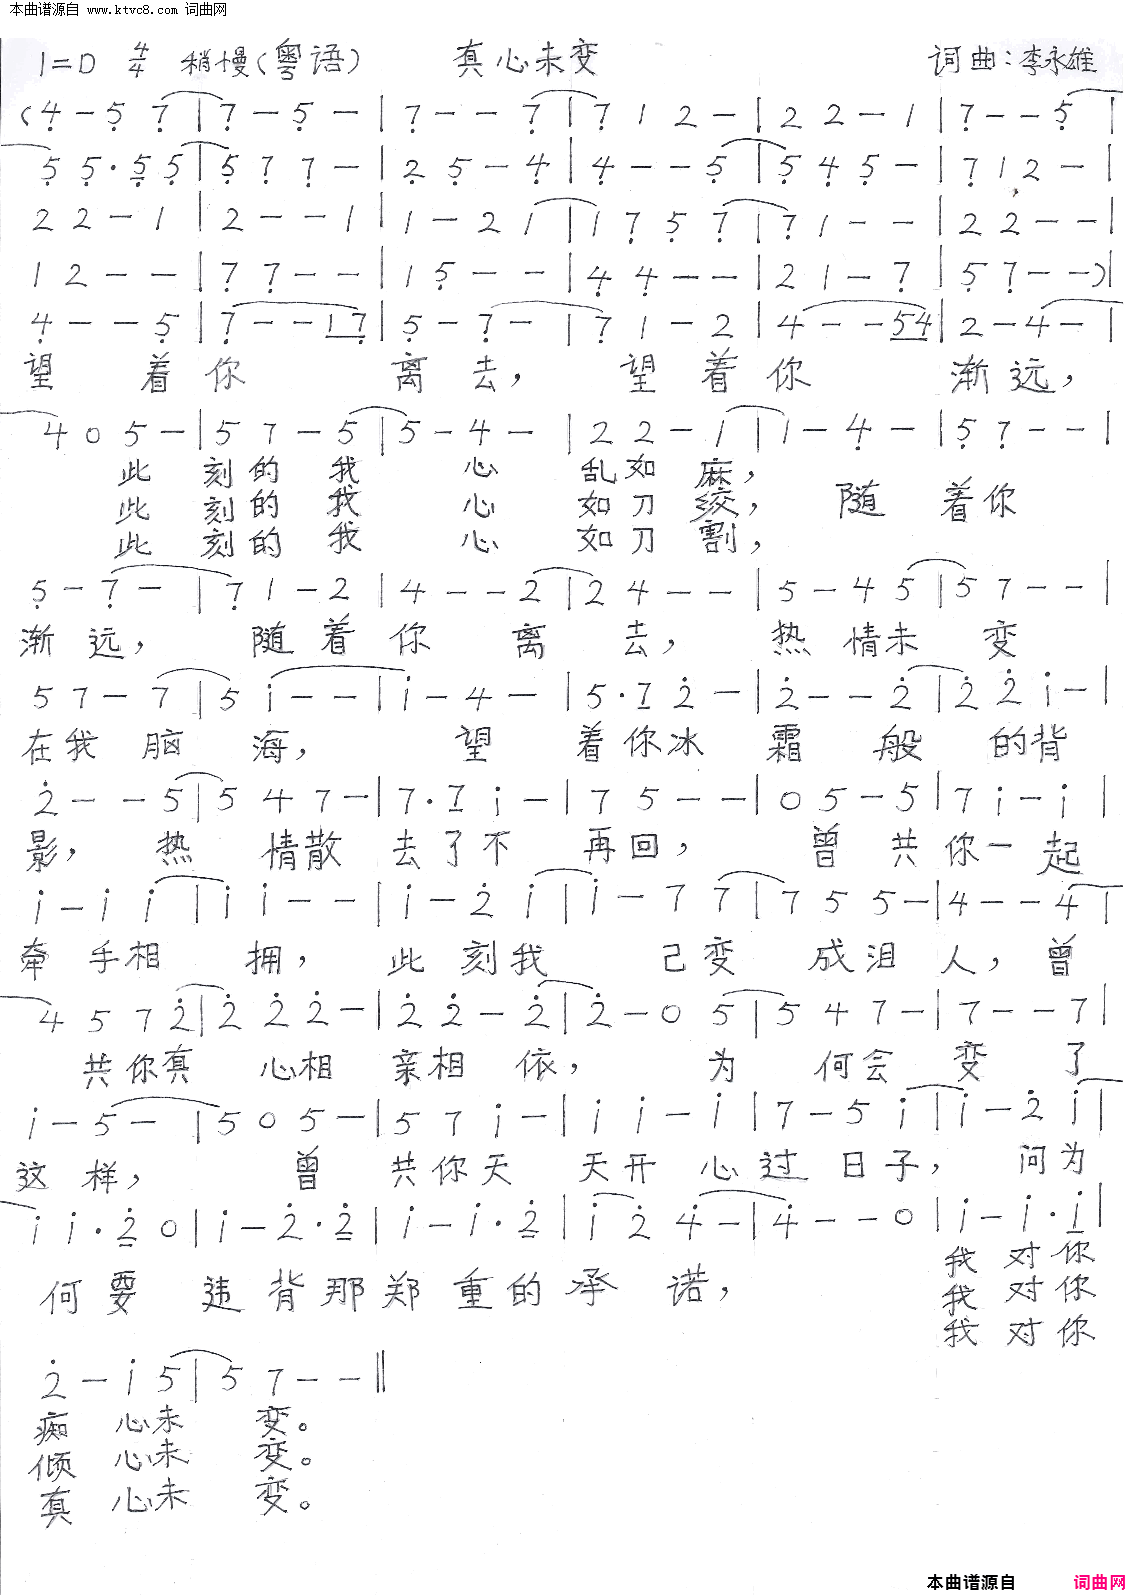 本曲谱源自 www.ktvc8.com 词曲网
1=D 4/4 稍慢(粤语) 真心未变 词曲:李永雄
(4 - 5 7 | 7 - 5 - | 7 - - 7 | 7 1 2 - | 2 2 - 1 | 7 - - 5 |
5 5 · 5 5 | 5 7 7 - | 2 5 - 4 | 4 - - 5 | 5 4 5 - | 7 1 2 - |
2 2 - 1 | 2 - - 1 | 1 - 2 1 | 1 7 5 7 | 7 1 - - | 2 2 - - |
1 2 - - | 7 7 - - | 1 5 - - | 4 4 - - | 2 1 - 7 | 5 7 - - ) |
4 - - 5 | 7 - - 1 7 | 5 - 7 - | 7 1 - 2 | 4 - - 5 4 | 2 - 4 - |
望 着 你 离 去, 望 着 你 渐 远,
4 0 5 - | 5 7 - 5 | 5 - 4 - | 2 2 - 1 | 1 - 4 - | 5 7 - - |
此 刻 的 我 心 乱 如 麻,
此 刻 的 我 心 如 刀 绞, 随 着 你
此 刻 的 我 心 如 刀 割,
5 - 7 - | 7 1 - 2 | 4 - - 2 | 2 4 - - | 5 - 4 5 | 5 7 - - |
渐 远, 随 着 你 离 去, 热 情 未 变
5 7 - 7 | 5 i - - | i - 4 - | 5 · 1 2 - | 2 - - 2 | 2 2 i - |
在 我 脑 海, 望 着 你 冰 霜 般 的 背
2 - - 5 | 5 4 7 - | 7 · 7 i - | 7 5 - - | 0 5 - 5 | 7 i - i |
影, 热 情 散 去 了 不 再 回, 曾 共 你 一 起
i - i i | i i - - | i - 2 i | i - 7 7 | 7 5 5 - | 4 - - 4 |
牵 手 相 拥, 此 刻 我 己 变 成 泪 人, 曾
4 5 7 2 | 2 2 2 - | 2 2 - 2 | 2 - 0 5 | 5 4 7 - | 7 - - 7 |
共 你 真 心 相 亲 相 依, 为 何 会 变 了
i - 5 - | 5 0 5 - | 5 7 i - | i i - i | 7 - 5 i | i - 2 i |
这 样, 曾 共 你 天 天 开 心 过 日 子, 问 为
i i · 2 0 | i - 2 · 2 | i - i · 2 | i 2 4 - | 4 - - 0 | i - i · i |
何 要 违 背 那 郑 重 的 承 诺, 我 对 你
我 对 你
我 对 你
2 - i 5 | 5 7 - - ||
痴 心 未 变。
倾 心 未 变。
真 心 未 变。
本曲谱源自 词曲网